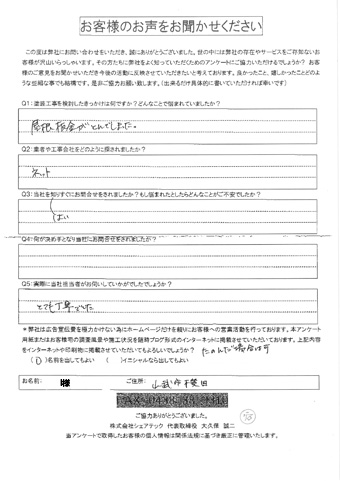 お客様のお声をお聞かせください
この度は弊社にお問い合わせをいただき、誠にありがとうございました。世の中には弊社の存在やサービスをご存知ないお
客様が沢山いらっしゃいます。その方たちに弊社をよく知っていただくためのアンケートにご協力いただけるでしょうか？お客
様のご意見をお聞かせいただき今後の活動に反映させていただきたいと考えております。良かったこと、嬉しかったことどのよ
うな些細な事でも結構です。是非ご協力お願い致します。（出来るだけ具体的に書いていただければ幸いです）
Q1：塗装工事を検討したきっかけは何ですか？どんなことで悩まれていましたか？
屋根板金がとんでしまった。
Q2：業者や工事会社をどのように探されましたか？
ネット
Q3：当社を知りすぐにお問合せをされましたか？もし悩まれたとしたらどんなことがご不安でしたか？
はい
Q4：何が決め手となり当社にお問合せをされましたか？
Q5：実際に当社担当者がお伺いしていかがでしたでしょうか？
とても丁寧でした
＊弊社は広告宣伝費を極力かけない為にホームページだけを頼りにお客様への営業活動を行っております。本アンケート
用紙またはお客様宅の調査風景や施工状況を随時ブログ形式のインターネットに掲載させていただいております。上記内容
をインターネットや印刷物に掲載させていただいてもよろしいでしょうか？
（ ）名前を出してもよい （ ）イニシャルなら出してもよい
お名前： 様 ご住所： 山武市
ご協力ありがとうございました。
株式会社シェアテック 代表取締役 大久保 誠二
当アンケートで取得したお客様の個人情報は関係法規に基づき厳正に管理いたします。